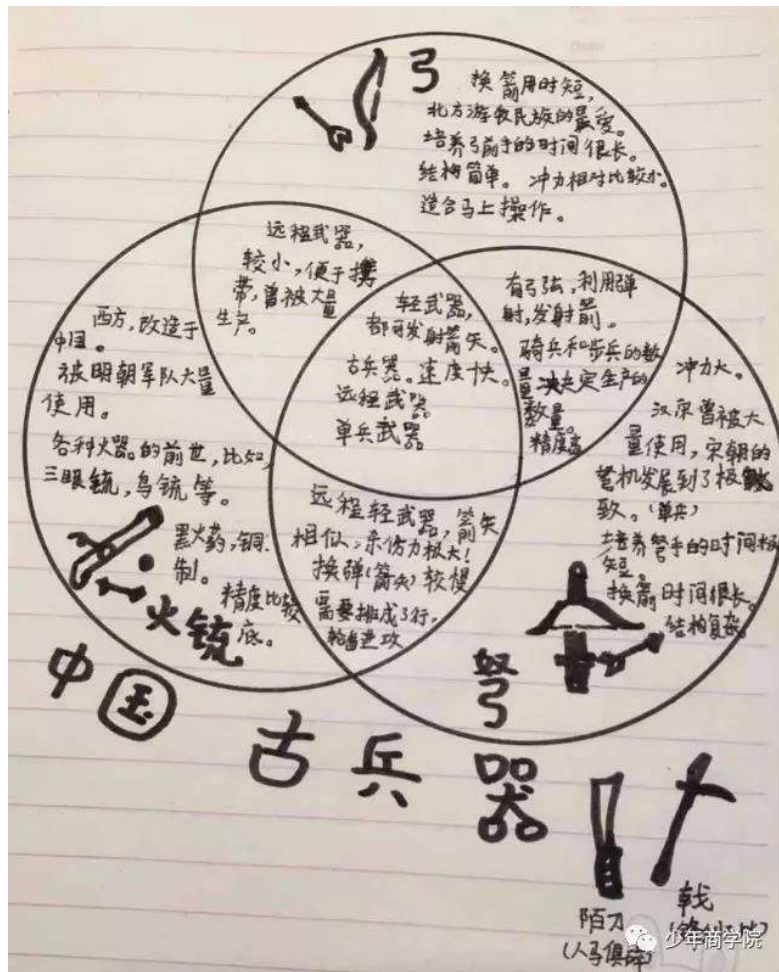 弓
换箭用时短,
北方游牧民族的最爱。
培养弓箭手的时间很长。
结构简单。冲力相对比较小。
适合马上操作。
远程武器,
较小,便于携
带,曾被大量
生产。
轻武器,
都可发射箭矢。
古兵器。速度快。
远程武器
单兵武器
有弓弦,利用弹
射,发射箭。
骑兵和步兵的数
量决定生产的
数量。
精度高
西方,改造于
中国。
被明朝军队大量
使用。
各种火器的前世,比如,
三眼铳,鸟铳等。
黑火药,铜
制。
精度比较
底。
火铳
远程轻武器,箭矢
相似,杀伤力极大!
换弹(箭矢)较慢
需要排成3行,
轮番进攻
冲力大。
汉宋曾被大
量使用,宋朝的
弩机发展到了极
致。(单兵)
培养弩手的时间极
短。
换箭时间很长。
结构复杂。
弩
中国
古兵器
陌刀
(人马俱碎)
戟
少年商学院